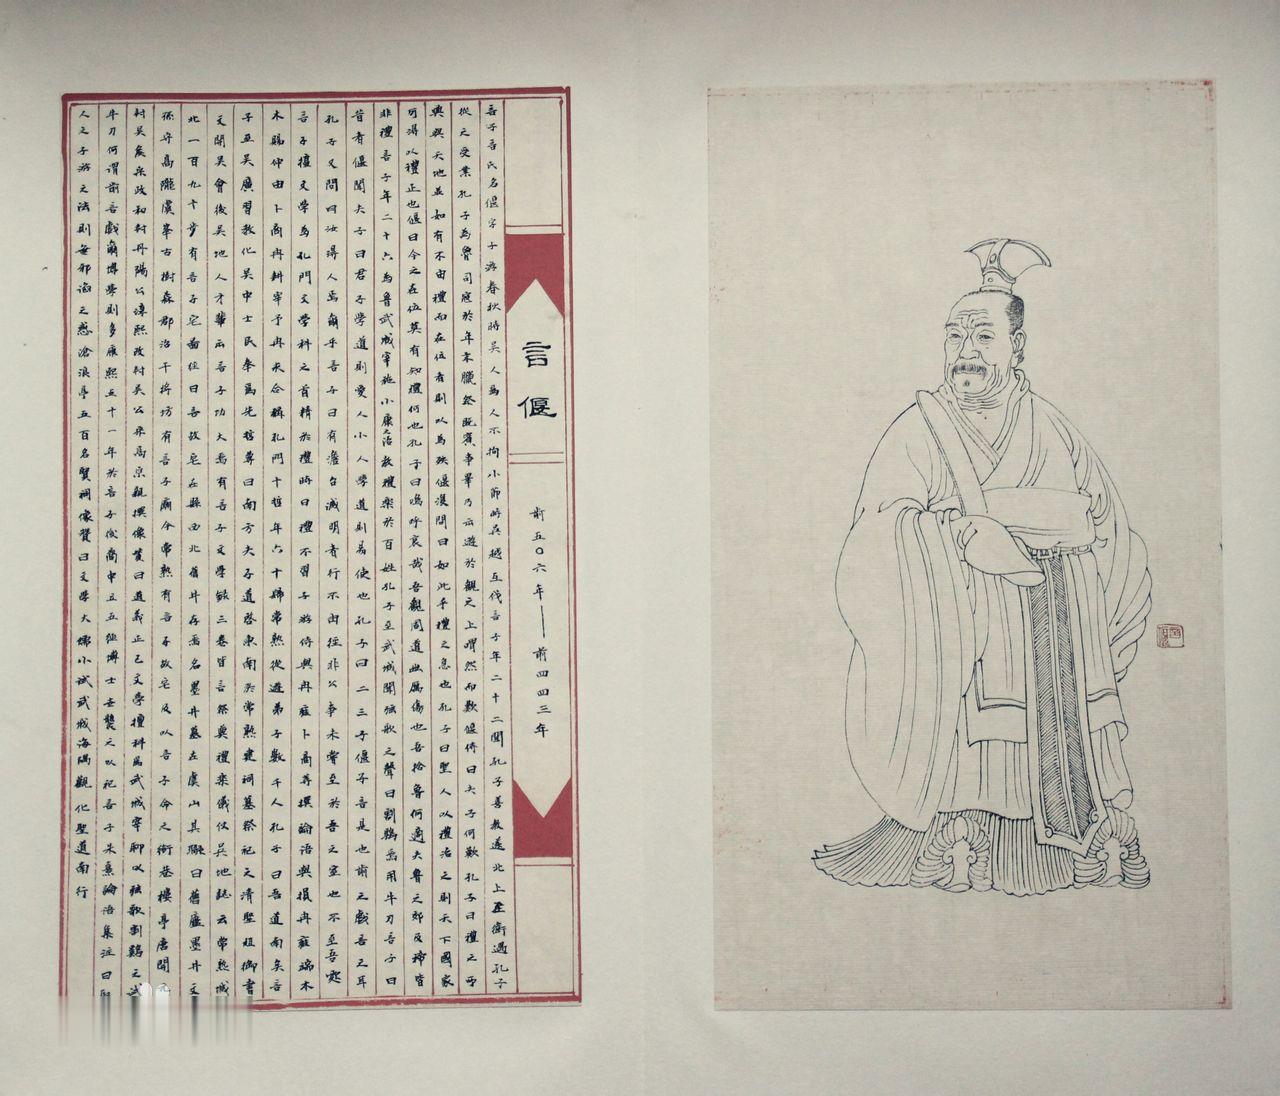 言偃
前五〇六年——前四四三年
言子言氏名偃字子游春秋時吳人爲人不拘小節時吳越互伐言子年二十二聞孔子善教遂北上至衛遇孔子
從之受業孔子為魯司寇於年末臘祭既賓事畢乃出遊於觀之上喟然而歎偃侍曰夫子何歎孔子曰禮之所
興與天地並如有不由禮而在位者則以為殃偃復問曰如此乎禮之急也孔子曰聖人以禮治之則天下國家
可得以禮正也偃曰今之在位莫有知禮何也孔子曰嗚呼哀哉吾觀周道幽厲傷也吾捨魯何適夫魯之郊及禘皆
非禮言子年二十六為魯武城宰施小康之治教禮樂於百姓孔子至武城聞弦歌之聲曰割鷄焉用牛刀言子曰
昔者偃聞夫子曰君子學道則愛人小人學道則易使也孔子曰二三子偃子言是也前之戲言之耳
孔子又問曰汝得人焉爾乎言子曰有澹台滅明者行不由徑非公事未嘗至於吾之室也不至吾
言子擅文學為孔門文學科之首精於禮時曰禮不習子游侍與冉雍卜商等撰論語與損冉雍端木
木賜仲由卜商冉耕宰予冉求合稱孔門十哲年六十歸常熟從遊弟子數千人孔子曰吾道南矣言
子至吳廣習教化吳中士民奉爲先哲尊曰南方夫子道啓東南於常熟建祠墓祭祀之清聖祖御書
文開吳會後吳地人才輩出言子功大焉有言子文學錄三卷皆言祭奠禮樂儀仗吳地誌云常熟城
北一百九十步有言子宅圖經曰言故宅在縣西北舊井存焉名墨井墓在虞山其聯曰舊廬墨井文
孫守高隴虞峯古樹森郡治干將坊有言子廟今常熟有言子故宅及以言子命之街巷樓亭唐開元
封吳矦宋政和封丹陽公淳熙改封吳公宋高宗親撰像贊曰道義正己文學擅科爲武城宰聊以弦歌割鷄之試
牛刀何謂前言戲爾博學則多康熙五十一年於言子後裔中立五經博士世襲之以祀言子朱熹論語集注曰取
人之子游之法則無邪謟之惑滄浪亭五百名賢祠像贊曰文學大儒小試武城海隅觀化聖道南行